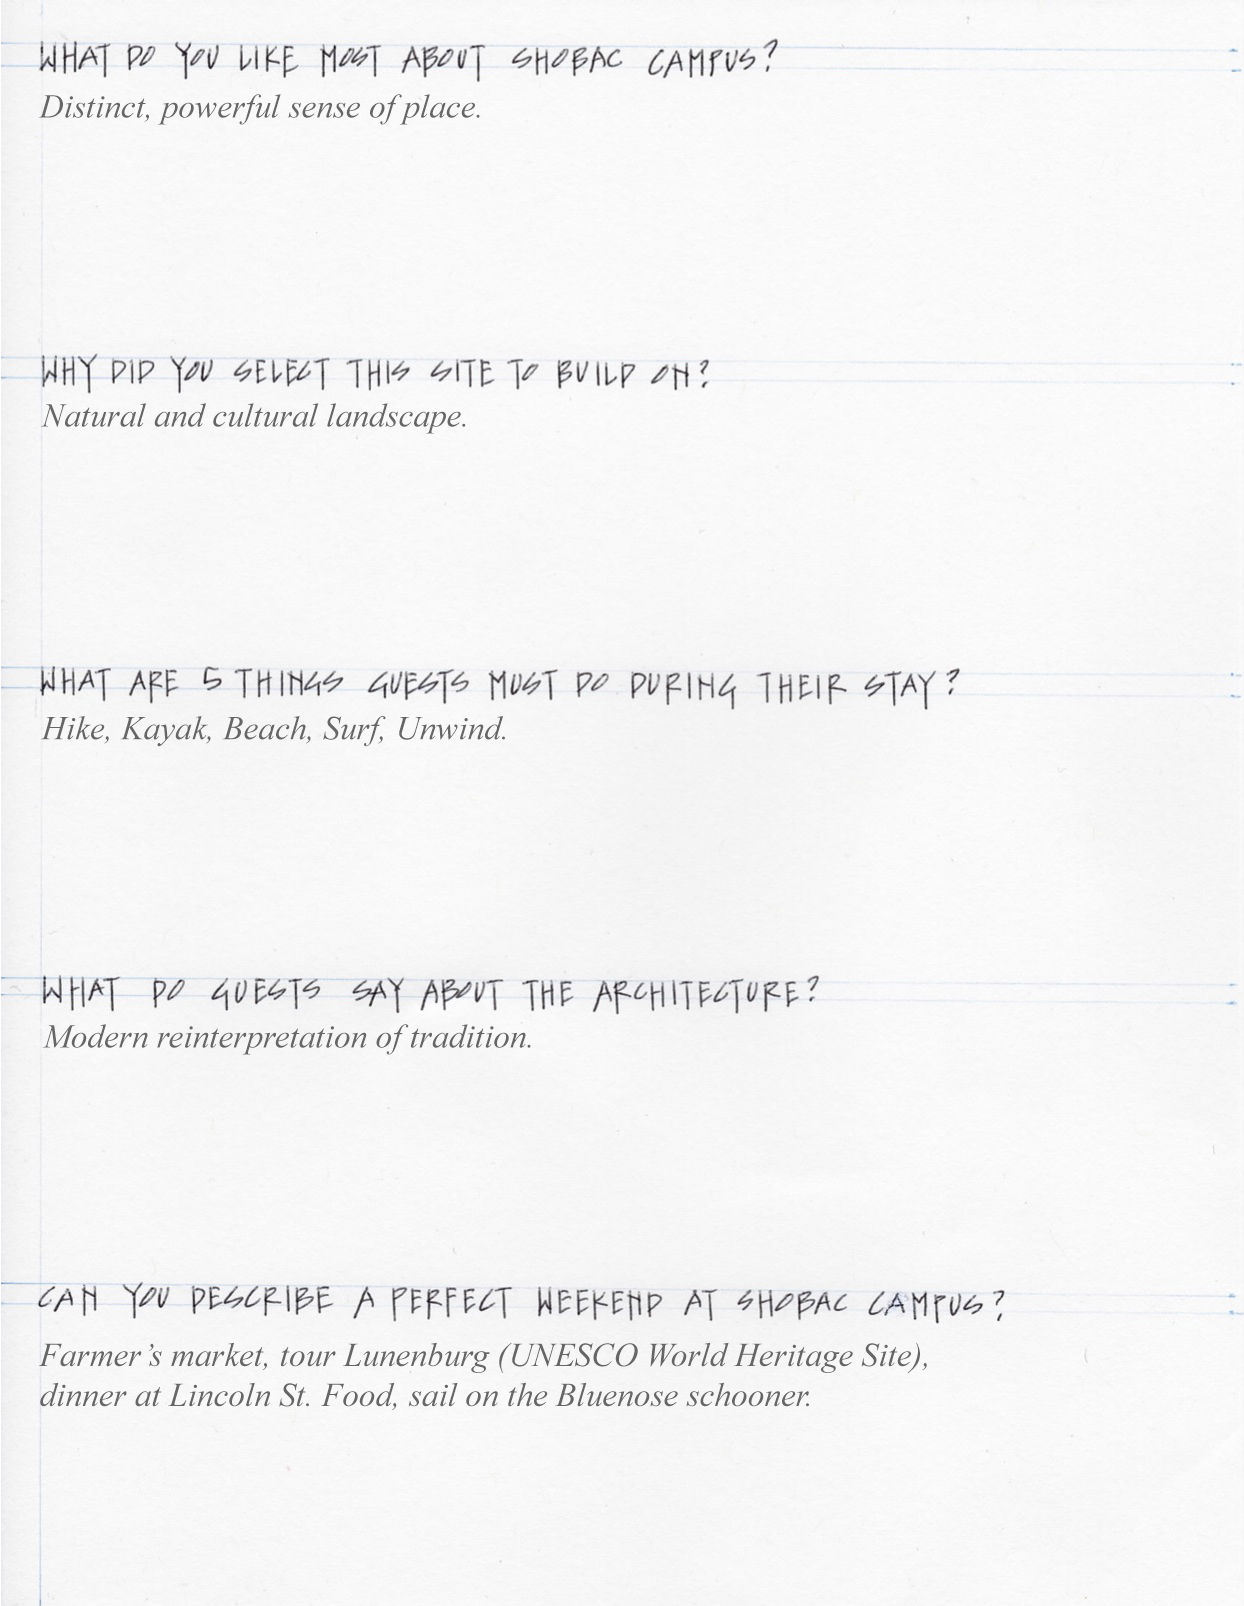 WHAT DO YOU LIKE MOST ABOUT SHOBAC CAMPUS?
Distinct, powerful sense of place.
WHY DID YOU SELECT THIS SITE TO BUILD ON?
Natural and cultural landscape.
WHAT ARE 5 THINGS GUESTS MUST DO DURING THEIR STAY?
Hike, Kayak, Beach, Surf, Unwind.
WHAT DO GUESTS SAY ABOUT THE ARCHITECTURE?
Modern reinterpretation of tradition.
CAN YOU DESCRIBE A PERFECT WEEKEND AT SHOBAC CAMPUS?
Farmer's market, tour Lunenburg (UNESCO World Heritage Site),
dinner at Lincoln St. Food, sail on the Bluenose schooner.